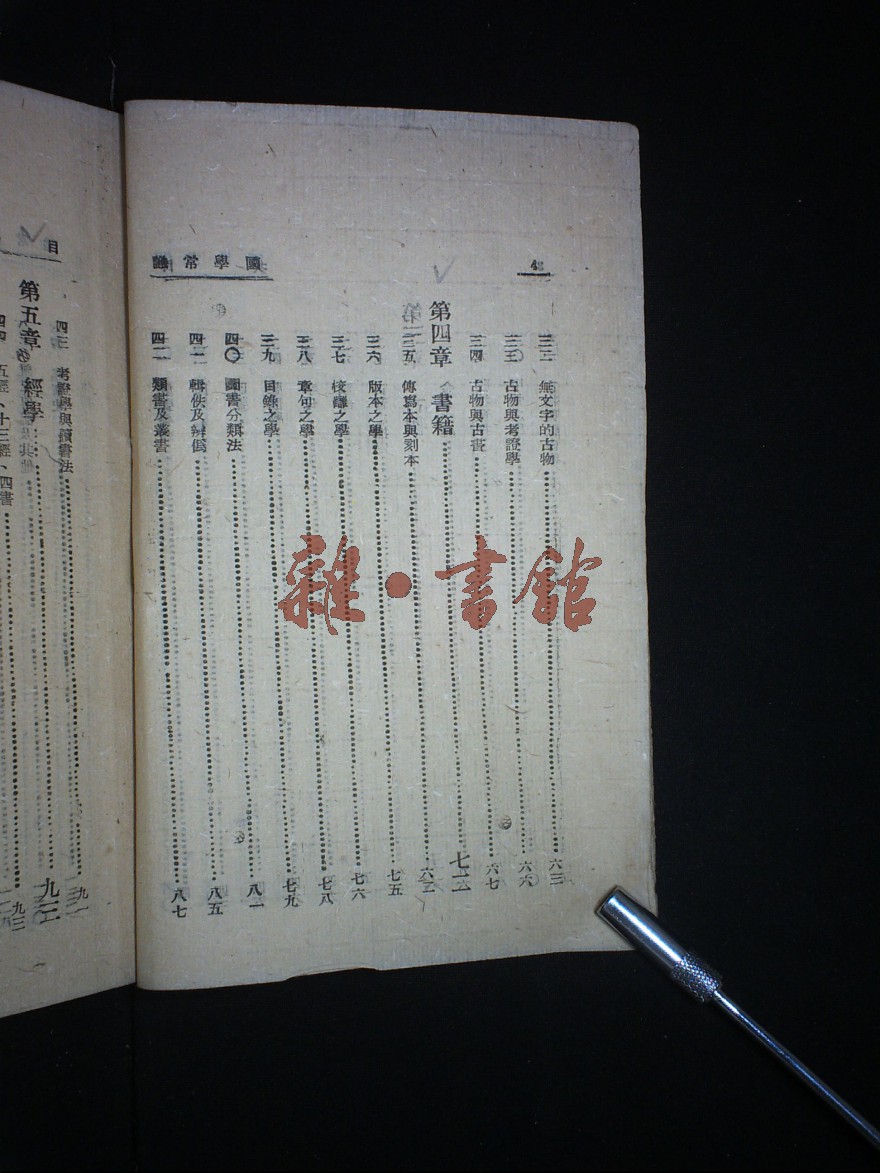 國學常識
4
三二 無文字的古物 六三
三三 古物與考證學 六六
三四 古物與古書 六七
第四章 書籍 七二
三五 傳寫本與刻本
三六 版本之學 七五
三七 校讎之學 七六
三八 章句之學 七八
三九 目錄之學 七九
四〇 圖書分類法 八一
四一 輯佚及辨僞 八五
四二 類書及叢書 八七
目
四三 考證學與讀書法 九一
第五章 經學 九二
五經、十三經、四書
雜·書館